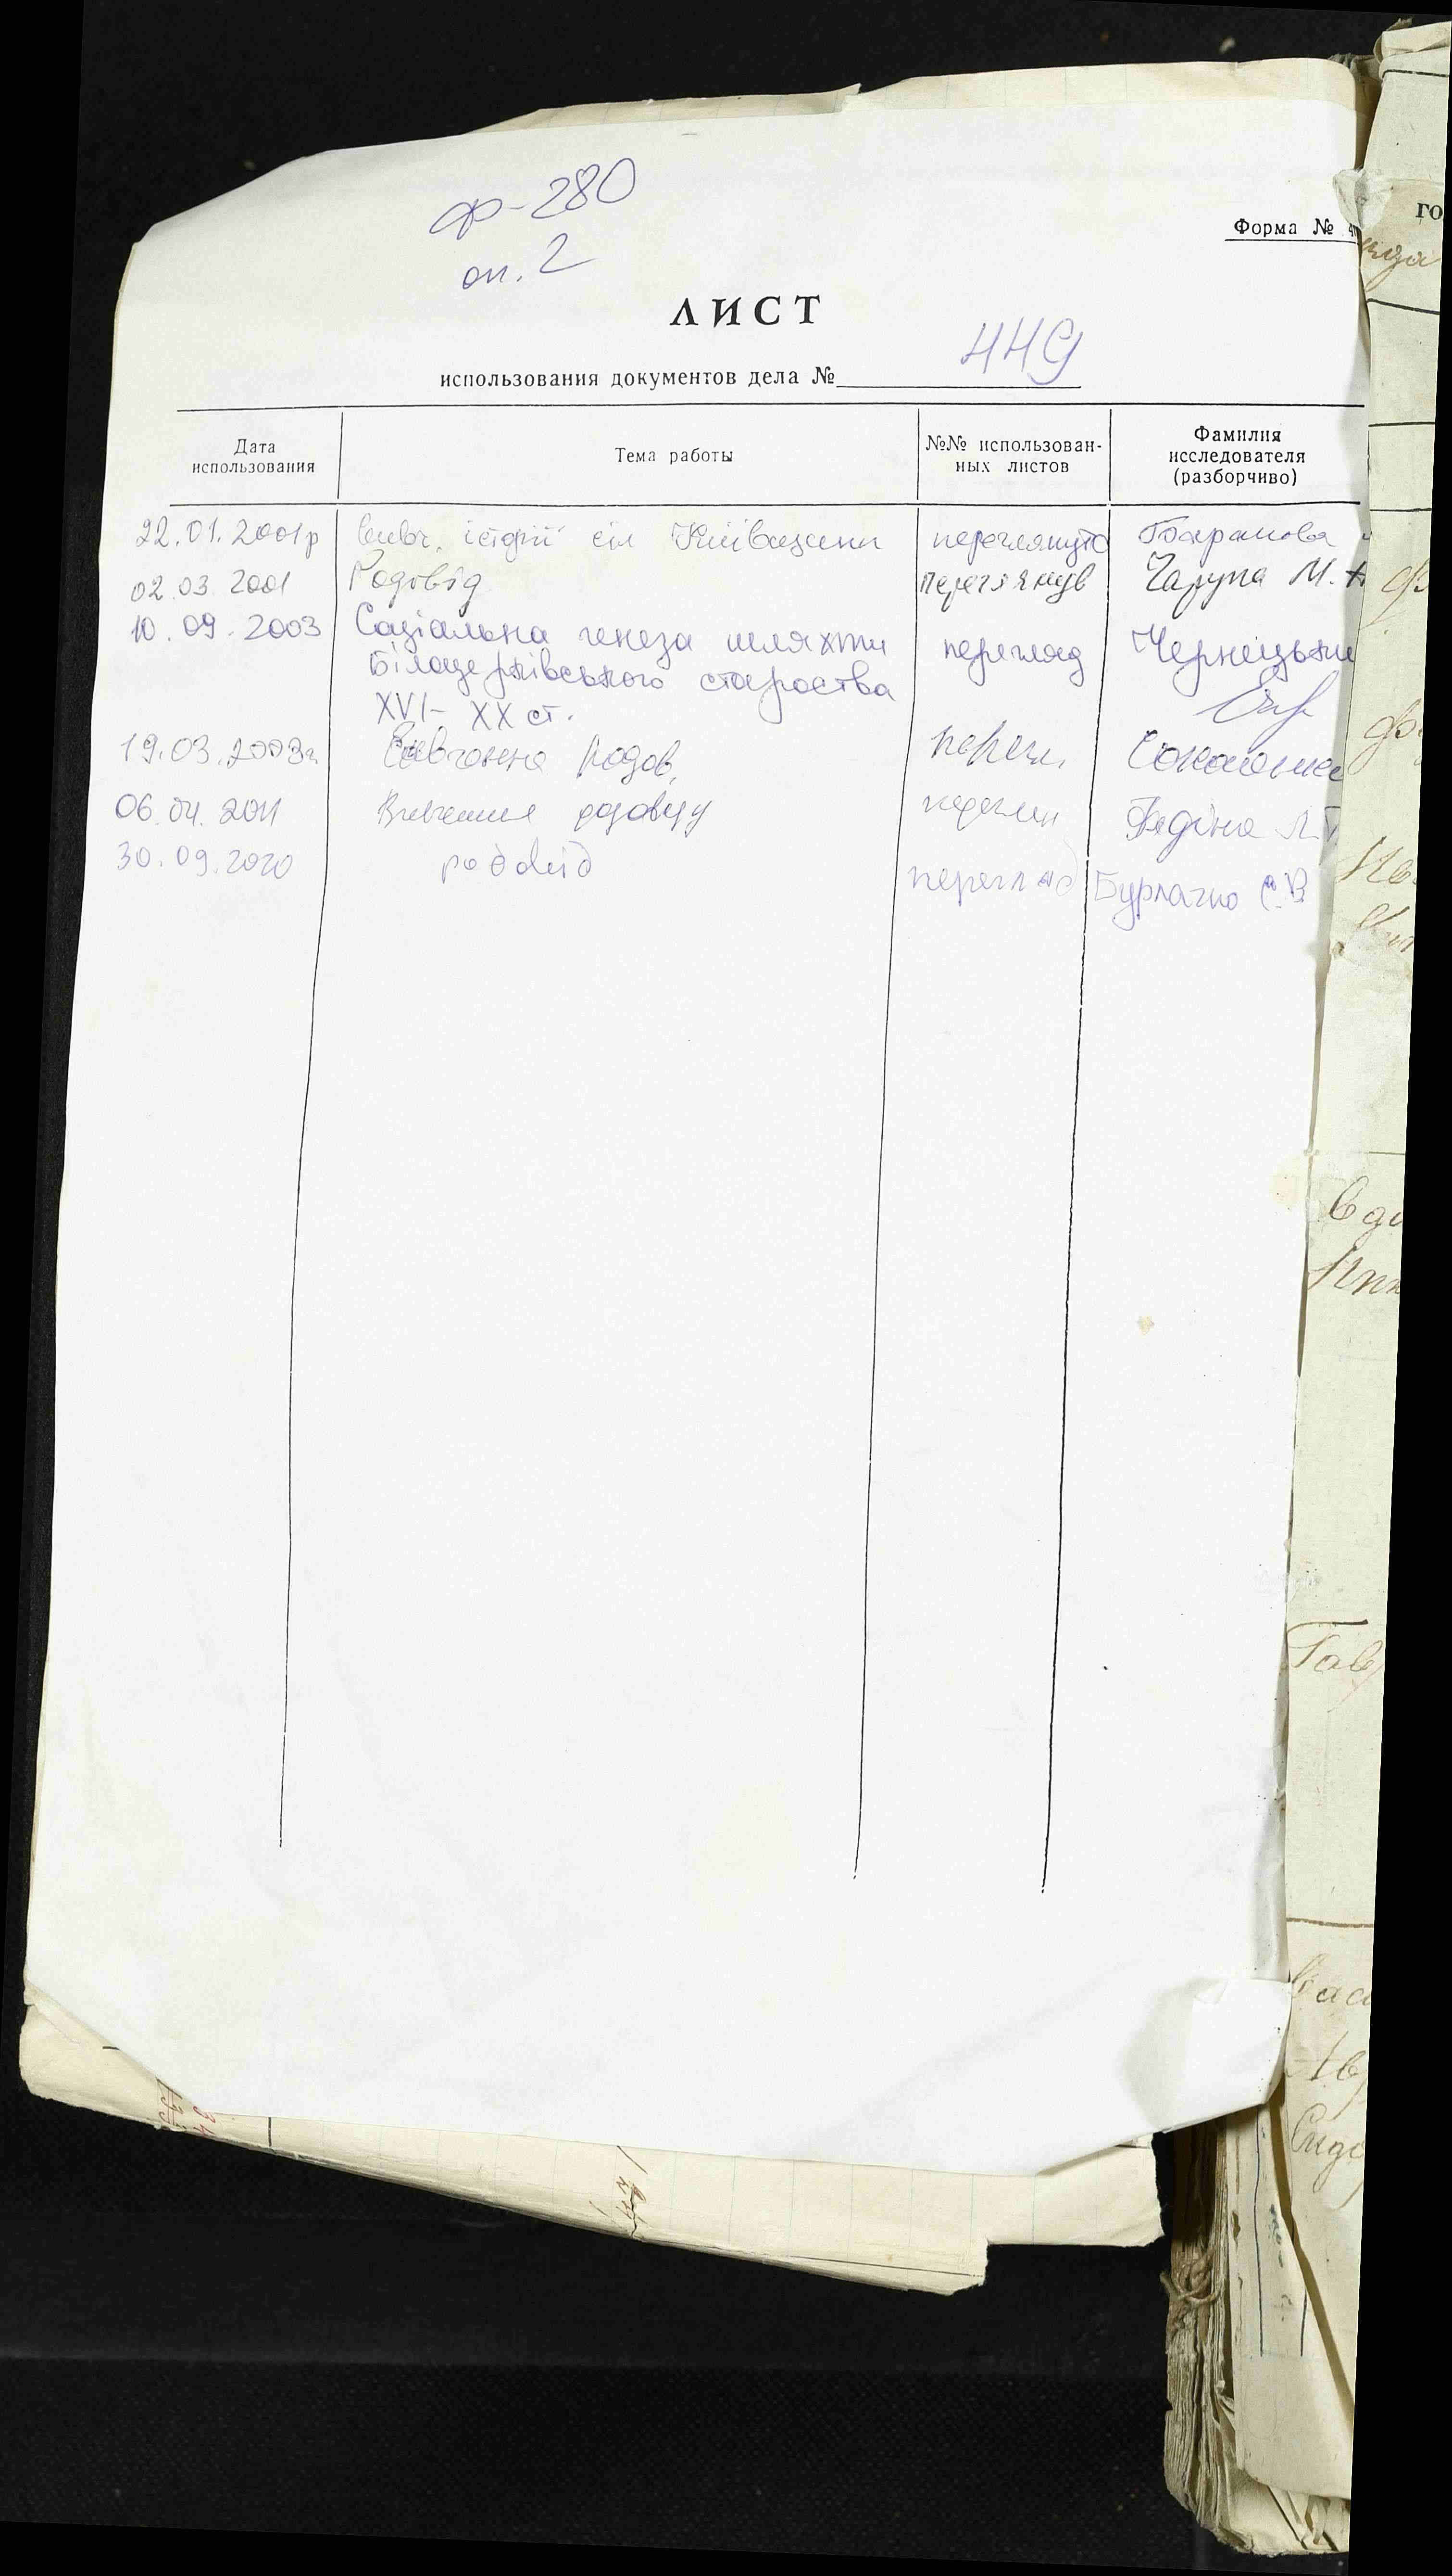 ф-280
оп. 2
Форма №
ЛИСТ
использования документов дела № 449
Дата использования Тема работы №№ использован-ных листов Фамилия исследователя (разборчиво)
22.01.2001р вивч. історії сіл Київщини переглянуто
02.03.2001 Родовід переглянув Чарупа М.
10.09.2003 Соціальна генеза шляхти перегляд
Білоцерківського староства
XVI- XX ст.
19.03.2003 Вивчення родов. перегл.
06.04.2011 Вивчення родоводу Федіна Л.
30.09.2020 родовід перегляд Бурлачко С.В